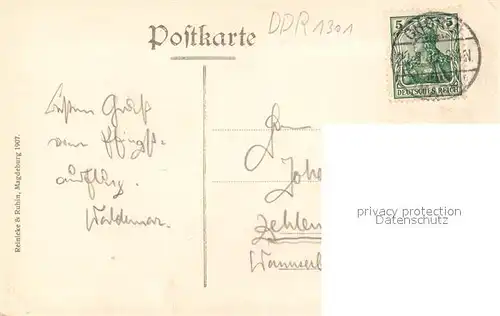 DDR 1301
Postkarte
5 5
DEUTSCHES REICH
Besten Gruß
vom Pfingst-
ausflug.
Waldemar.
Joha
Zehlen
Wannseeb
Reinicke & Rubin, Magdeburg 1907.
privacy protection
Datenschutz